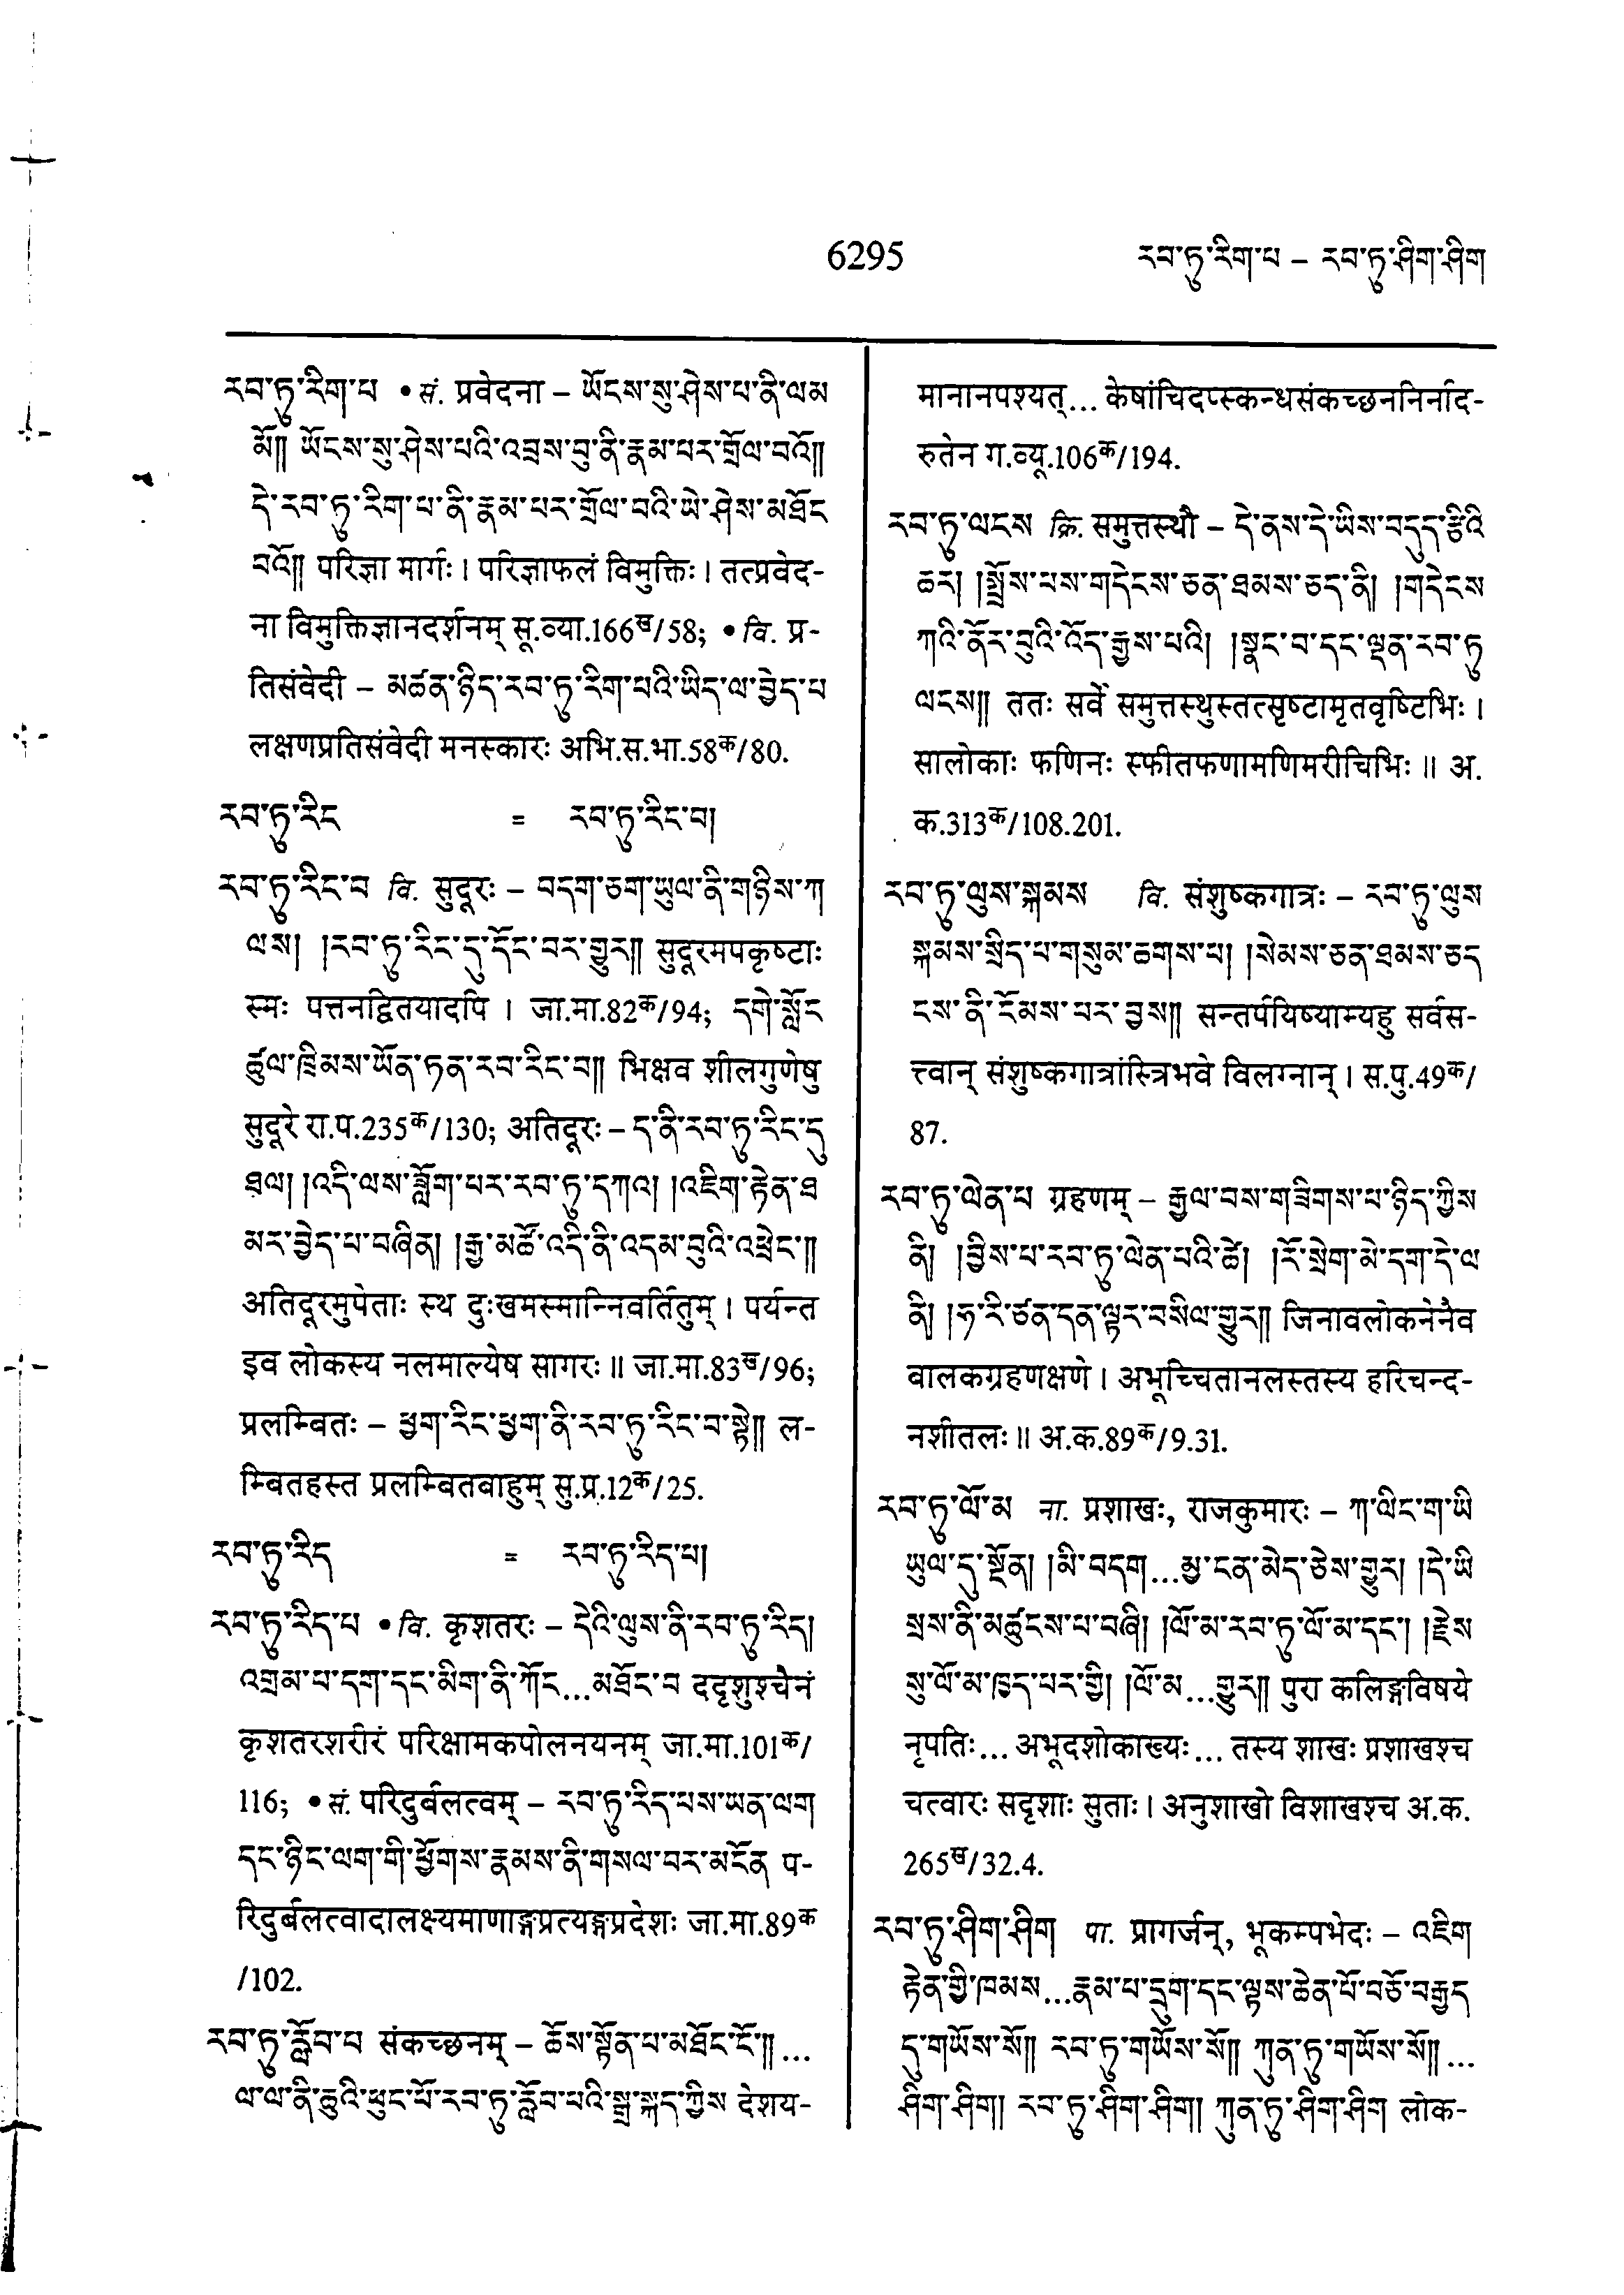 6295
རབ་ཏུ་རིག་པ – རབ་ཏུ་ཤིག་ཤིག
རབ་ཏུ་རིག་པ • सं. प्रवेदना – ཡོངས་སུ་ཤེས་པ་ནི་ལམ
མོ།། ཡོངས་སུ་ཤེས་པའི་འབྲས་བུ་ནི་རྣམ་པར་གྲོལ་བའོ།།
དེ་རབ་ཏུ་རིག་པ་ནི་རྣམ་པར་གྲོལ་བའི་ཡེ་ཤེས་མཐོང
བའོ།། परिज्ञा मार्गः । परिज्ञाफलं विमुक्तिः । तत्प्रवेद-
ना विमुक्तिज्ञानदर्शनम् सू.व्या.166ख/58; • वि. प्र-
तिसंवेदी – མཚན་ཉིད་རབ་ཏུ་རིག་པའི་ཡིད་ལ་བྱེད་པ
लक्षणप्रतिसंवेदी मनस्कारः अभि.स.भा.58क/80.
རབ་ཏུ་རིང = རབ་ཏུ་རིང་བ།
རབ་ཏུ་རིང་བ वि. सुदूरः – བདག་ཅག་ཡུལ་ནི་གཉིས་ཀ
ལས། །རབ་ཏུ་རིང་དུ་དོང་བར་གྱུར།། सुदूरमपकृष्टाः
स्मः पत्तनद्वितयादपि । जा.मा.82क/94; དགེ་སློང
ཚུལ་ཁྲིམས་ཡོན་ཏན་རབ་རིང་བ།། भिक्षव शीलगुणेषु
सुदूरे रा.प.235क/130; अतिदूरः – ད་ནི་རབ་ཏུ་རིང་དུ
ཐལ། །འདི་ལས་བློག་པར་རབ་ཏུ་དཀའ། །འཇིག་རྟེན་ཐ
མར་བྱེད་པ་བཞིན། །རྒྱ་མཚོ་འདི་ནི་འདམ་བུའི་འཕྲེང་།།
अतिदूरमुपेताः स्थ दुःखमस्मान्निवर्तितुम् । पर्यन्त
इव लोकस्य नलमाल्येष सागरः ॥ जा.मा.83ख/96;
प्रलम्बितः – ཕྱག་རིང་ཕྱག་ནི་རབ་ཏུ་རིང་བ་སྟེ།། ल-
म्बितहस्त प्रलम्बितबाहुम् सु.प्र.12क/25.
རབ་ཏུ་རིད = རབ་ཏུ་རིད་པ།
རབ་ཏུ་རིད་པ • वि. कृशतरः – དེའི་ལུས་ནི་རབ་ཏུ་རིད།
འགྲམ་པ་དག་དང་མིག་ནི་ཀོང…མཐོང་བ ददृशुश्चैनं
कृशतरशरीरं परिक्षामकपोलनयनम् जा.मा.101क/
116; • सं. परिदुर्बलत्वम् – རབ་ཏུ་རིད་པས་ཡན་ལག
དང་ཉིང་ལག་གི་ཕྱོགས་རྣམས་ནི་གསལ་བར་མངོན प-
रिदुर्बलत्वादालक्ष्यमाणाङ्गप्रत्यङ्गप्रदेशः जा.मा.89क
/102.
རབ་ཏུ་རློབ་པ संकच्छनम् – ཆོས་སྟོན་པ་མཐོང་ངོ་།།…
ལ་ལ་ནི་ཆུའི་ཕུང་པོ་རབ་ཏུ་རློབ་པའི་སྒྲ་སྐད་ཀྱིས देशय-
मानानपश्यत्… केषांचिदप्स्कन्धसंकच्छननिर्नाद-
रुतेन ग.व्यू.106क/194.
རབ་ཏུ་ལངས क्रि. समुत्तस्थौ – དེ་ནས་དེ་ཡིས་བདུད་རྩིའི
ཆར། །སྤྲོས་པས་གདེངས་ཅན་ཐམས་ཅད་ནི། །གདེངས
ཀའི་ནོར་བུའི་འོད་རྒྱས་པའི། །སྣང་བ་དང་ལྡན་རབ་ཏུ
ལངས།། ततः सर्वे समुत्तस्थुस्तत्सृष्टामृतवृष्टिभिः ।
सालोकाः फणिनः स्फीतफणामणिमरीचिभिः ॥ अ.
क.313क/108.201.
རབ་ཏུ་ལུས་སྐམས वि. संशुष्कगात्रः – རབ་ཏུ་ལུས
སྐམས་སྲིད་པ་གསུམ་ཆགས་པ། །སེམས་ཅན་ཐམས་ཅད
ངས་ནི་ངོམས་པར་བྱས།། सन्तर्पयिष्याम्यहु सर्वस-
त्त्वान् संशुष्कगात्रांस्त्रिभवे विलग्नान् । स.पु.49क/
87.
རབ་ཏུ་ལེན་པ ग्रहणम् – རྒྱལ་བས་གཟིགས་པ་ཉིད་ཀྱིས
ནི། །བྱིས་པ་རབ་ཏུ་ལེན་པའི་ཚེ། །རོ་སྲེག་མེ་དག་དེ་ལ
ནི། །ཧ་རི་ཙན་དན་ལྟར་བསིལ་གྱུར།། जिनावलोकनेनैव
बालकग्रहणक्षणे । अभूच्चितानलस्तस्य हरिचन्द-
नशीतलः ॥ अ.क.89क/9.31.
རབ་ཏུ་ལོ་མ ना. प्रशाखः, राजकुमारः – ཀ་ལིང་ག་ཡི
ཡུལ་དུ་སྔོན། །མི་བདག…མྱ་ངན་མེད་ཅེས་གྱུར། །དེ་ཡི
སྲས་ནི་མཚུངས་པ་བཞི། །ལོ་མ་རབ་ཏུ་ལོ་མ་དང་། །རྗེས
སུ་ལོ་མ་ཁྱད་པར་གྱི། །ལོ་མ…གྱུར།། पुरा कलिङ्गविषये
नृपतिः… अभूदशोकाख्यः… तस्य शाखः प्रशाखश्च
चत्वारः सदृशाः सुताः । अनुशाखो विशाखश्च अ.क.
265ख/32.4.
རབ་ཏུ་ཤིག་ཤིག पा. प्रागर्जन्, भूकम्पभेदः – འཇིག
རྟེན་གྱི་ཁམས…རྣམ་པ་དྲུག་དང་ལྟས་ཆེན་པོ་བཅོ་བརྒྱད
དུ་གཡོས་སོ།། རབ་ཏུ་གཡོས་སོ།། ཀུན་ཏུ་གཡོས་སོ།།…
ཤིག་ཤིག། རབ་ཏུ་ཤིག་ཤིག། ཀུན་ཏུ་ཤིག་ཤིག लोक-